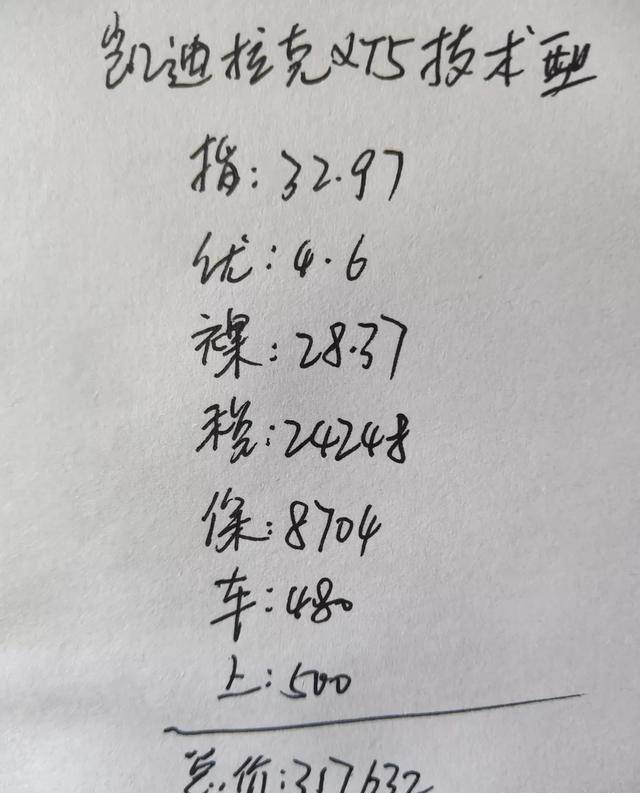 凯迪拉克XT5技术型
指:32.97
优:4.6
裸:28.37
税:24248
保:8704
车:480
上:500
总价:317632